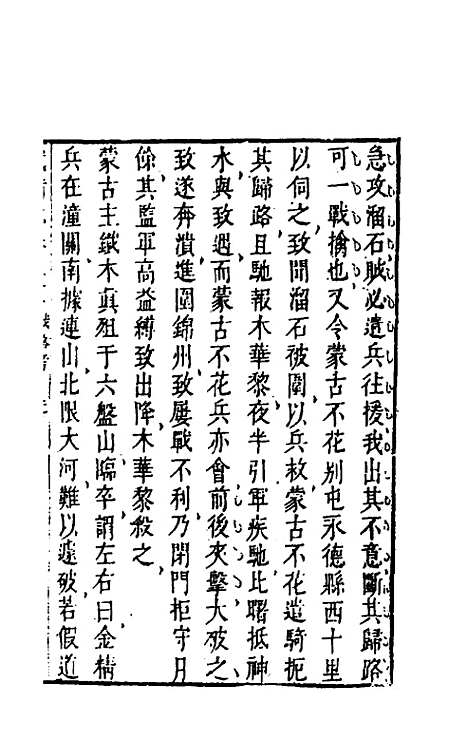 急攻溜石賊必遣兵往援我出其不意斷其歸路
可一戰擒也又令蒙古不花別屯永德縣西十里
以伺之致聞溜石被圍以兵救蒙古不花遣騎扼
其歸路且馳報木華黎夜半引軍疾馳比曙抵神
水與致遇而蒙古不花兵亦會前後夾擊大破之
致遂奔潰進圍錦州致屢戰不利乃閉門拒守月
餘其監軍高益縛致出降木華黎殺之
蒙古主鐵木真殂于六盤山臨卒謂左右曰金精
兵在潼關南據連山北限大河難以遽破若假道